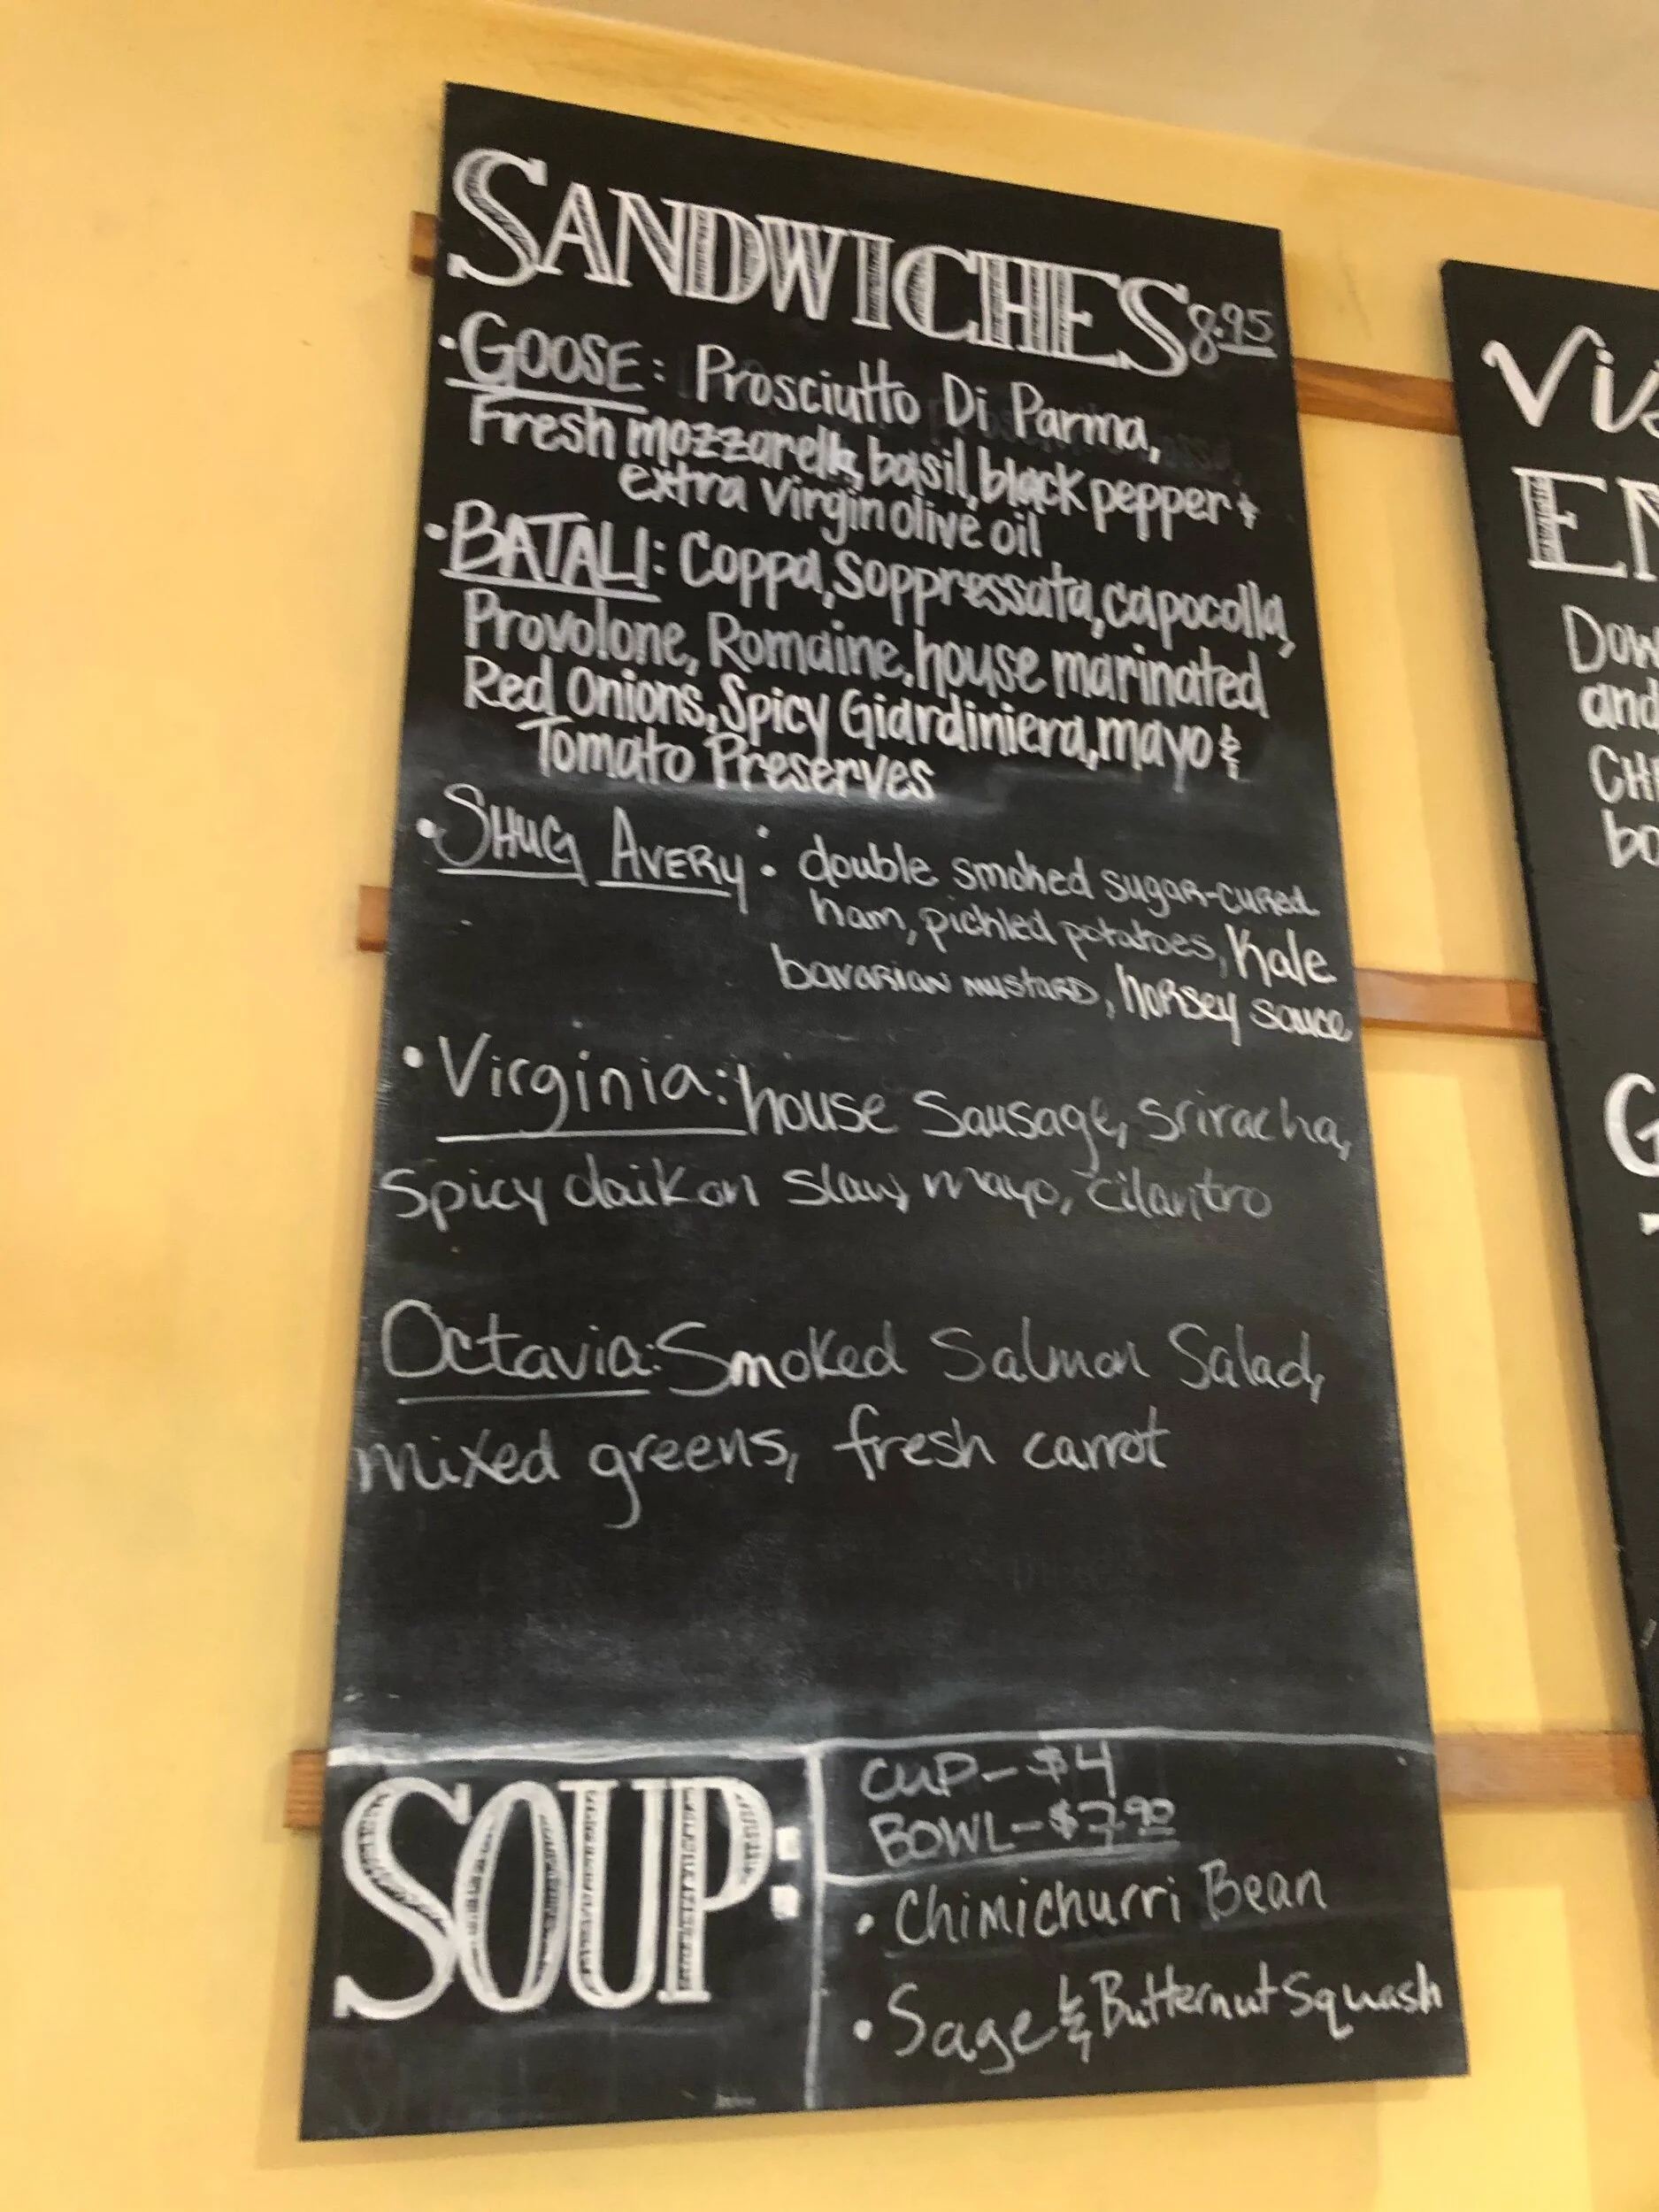 SANDWICHES 8.95
• GOOSE: Prosciutto Di Parma,
Fresh mozzarella, basil, black pepper &
extra virgin olive oil
• BATALI: Coppa, Soppressata, capocolla,
Provolone, Romaine, house marinated
Red Onions, Spicy Giardiniera, mayo &
Tomato Preserves
• SHUG AVERY: double smoked sugar-cured
ham, pickled potatoes, Kale
bavarian mustard, horsey sauce
• Virginia: house Sausage, sriracha,
Spicy daikon slaw, mayo, cilantro
Octavia: Smoked Salmon Salad,
mixed greens, fresh carrot
SOUP:
CUP - $4
BOWL - $7.90
• Chimichurri Bean
• Sage & Butternut Squash
and